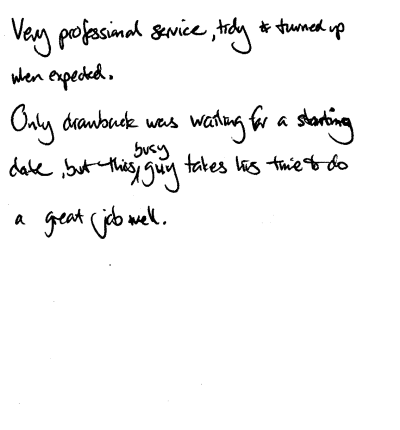 Very professional service, tidy & turned up
when expected.
Only drawback was waiting for a starting
date, but this busy guy takes his time to do
a great job well.